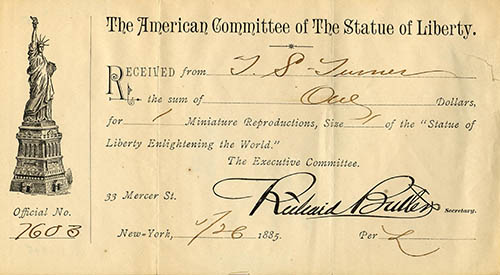 The American Committee of The Statue of Liberty.
RECEIVED from T. S. Turner
the sum of One Dollars,
for 1 Miniature Reproductions, Size 1 of the "Statue of
Liberty Enlightening the World."
The Executive Committee.
33 Mercer St. Richard Butler Secretary.
New-York, 1885. Per
Official No.
7603